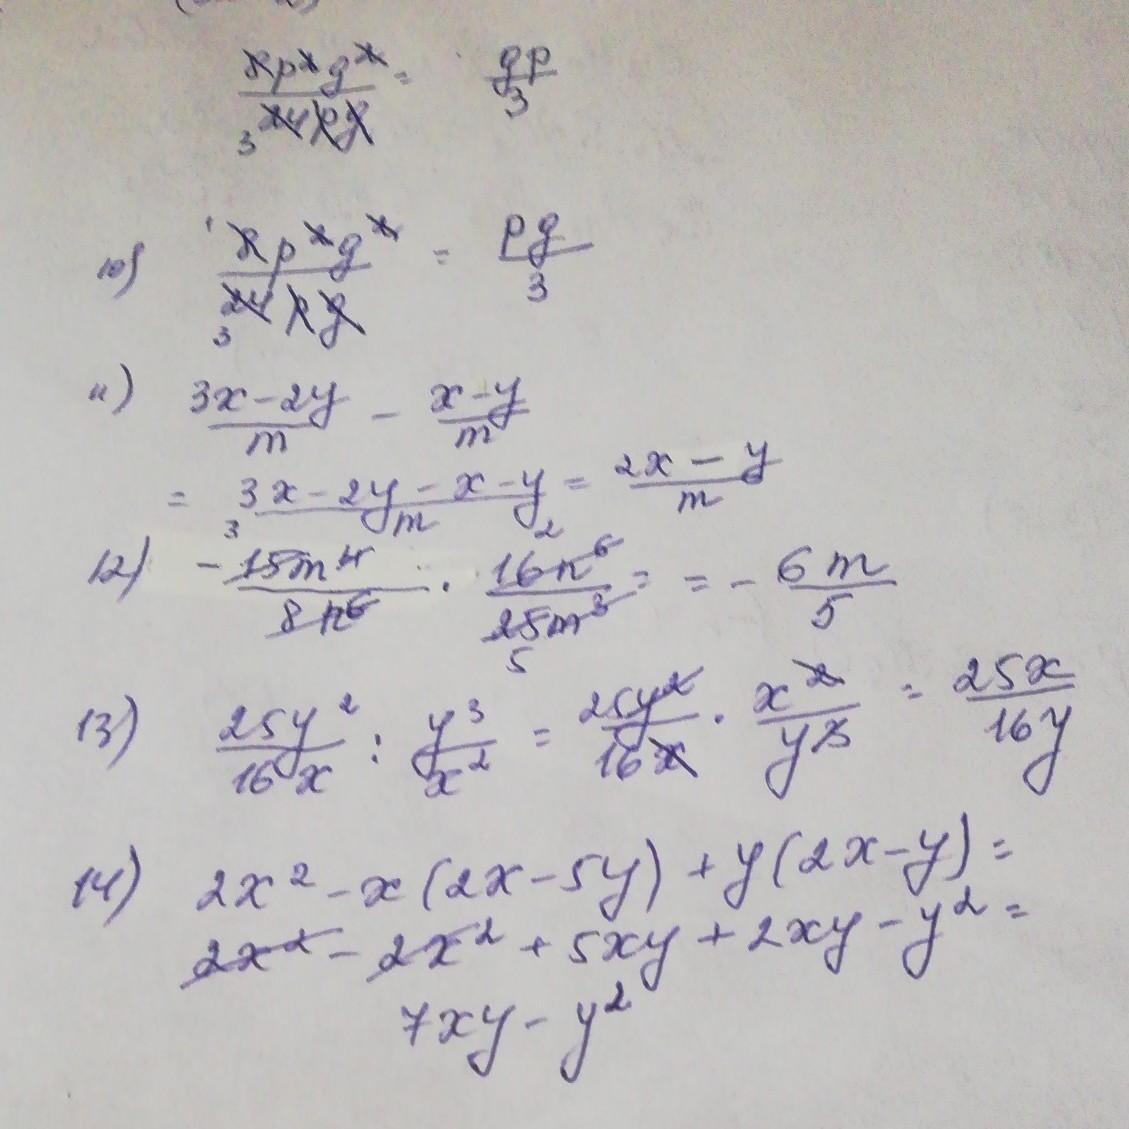 8p²g² / 24pg = gp / 3
3
10) 8p²g² / 24pg = pg / 3
1
3
11) 3x-2y / m - x-y / m
= 3x-2y-x-y / m = 2x-y / m
12) - 15m⁴ / 8n⁶ · 16n⁶ / 25m³ = = - 6m / 5
3 2
5
13) 25y² / 16x : y³ / x² = 25y² / 16x · x² / y³ = 25x / 16y
14) 2x² - x(2x-5y) + y(2x-y) =
2x² - 2x² + 5xy + 2xy - y² =
7xy - y²